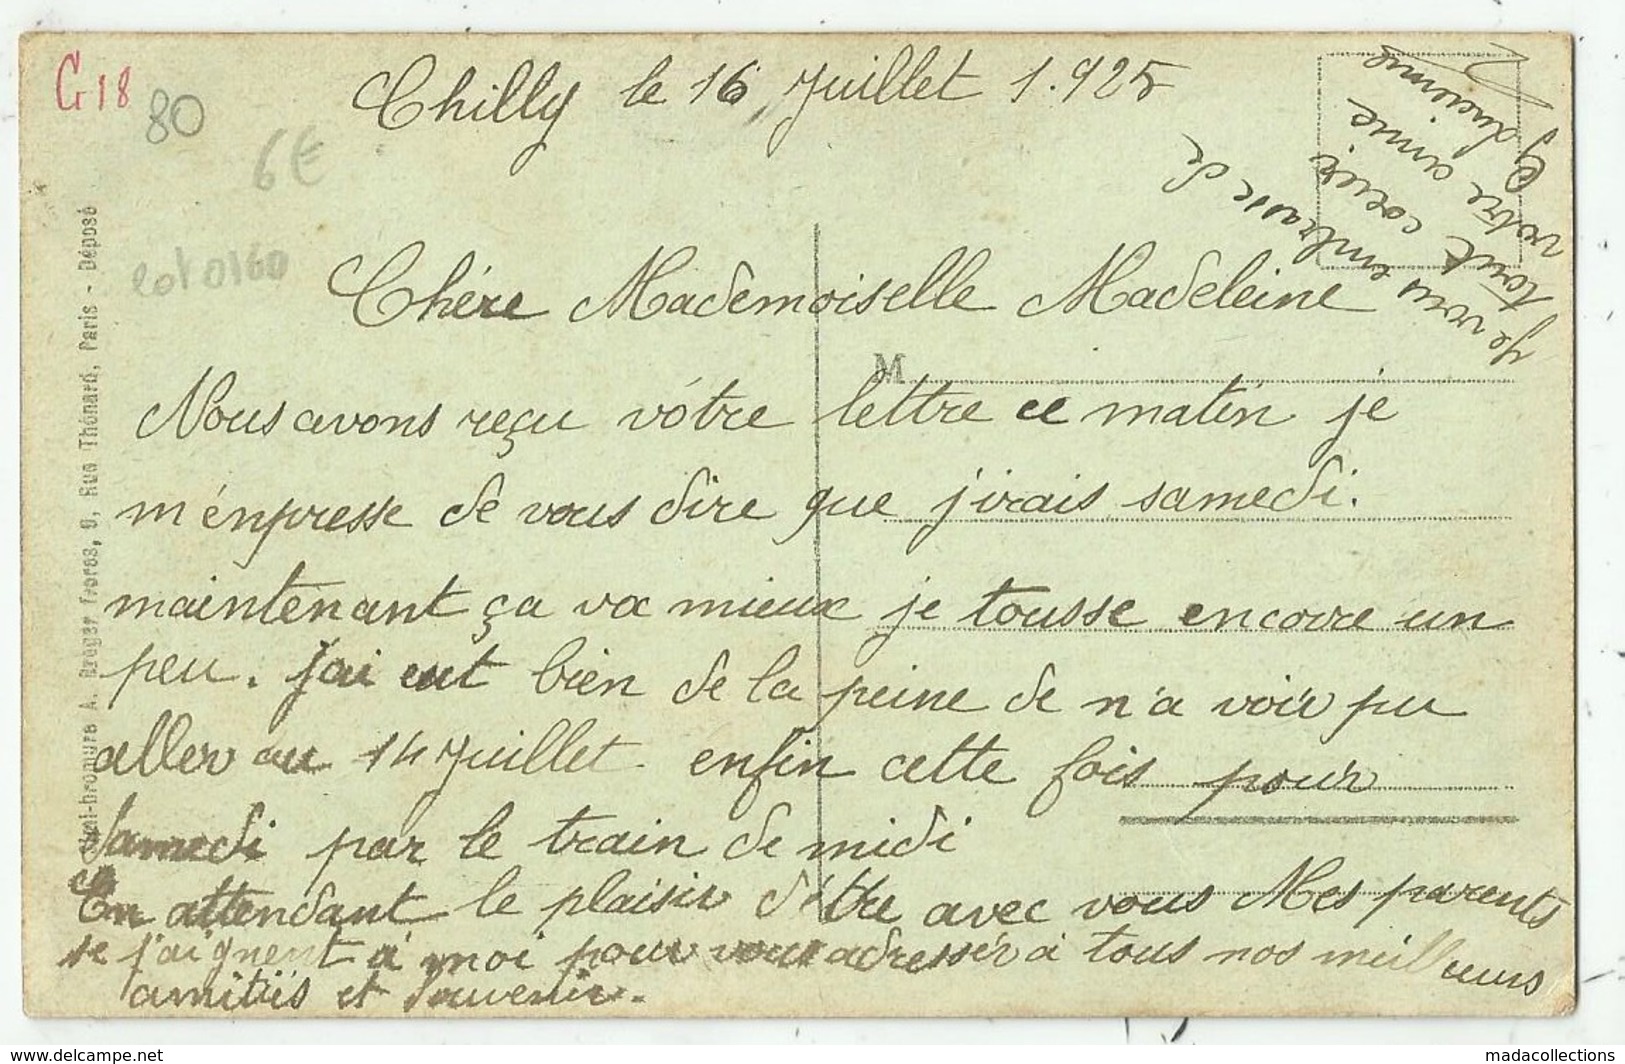 G 18
80
6€
lot 0160
Chilly le 16 Juillet 1.925
Chére Mademoiselle Madeleine
M
Nous avons reçu vôtre lettre ce matin je
m'énpresse de vous dire que j'irais samedi.
maintenant ça va mieux je tousse encore un
peu. j'ai eut bien de la peine de n'a voir pu
aller au 14 Juillet enfin cette fois pour
Samedi par le train de midi
En attendant le plaisir d'être avec vous Mes parents
se j'aignent à moi pour vous adresser à tous nos meilleurs
amitiés et Souvenir.
Je vous embrasse de
tout cœur
votre amie
Lucienne
Simi-bromure A. Breger frères, 9, Rue Thénard, Paris - Déposé
delcampe.net
madacollections